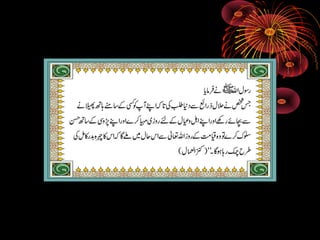 رسول اللہ ﷺ نے فرمایا
جس شخص نے حلال ذرائع سے دنیا طلب کی تاکہ اپنے آپ کو کسی کے سامنے ہاتھ پھیلانے
سے بچائے رکھے اور اپنے اہل و عیال کے لئے روزی مہیا کرے اور اپنے پڑوسی کے ساتھ حسن
سلوک کرے تو وہ قیامت کے روز اللہ تعالیٰ سے اس حال میں ملے گا کہ اس کا چہرہ بدر کامل کی
طرح چمک رہا ہوگا۔" (کنز العمال)